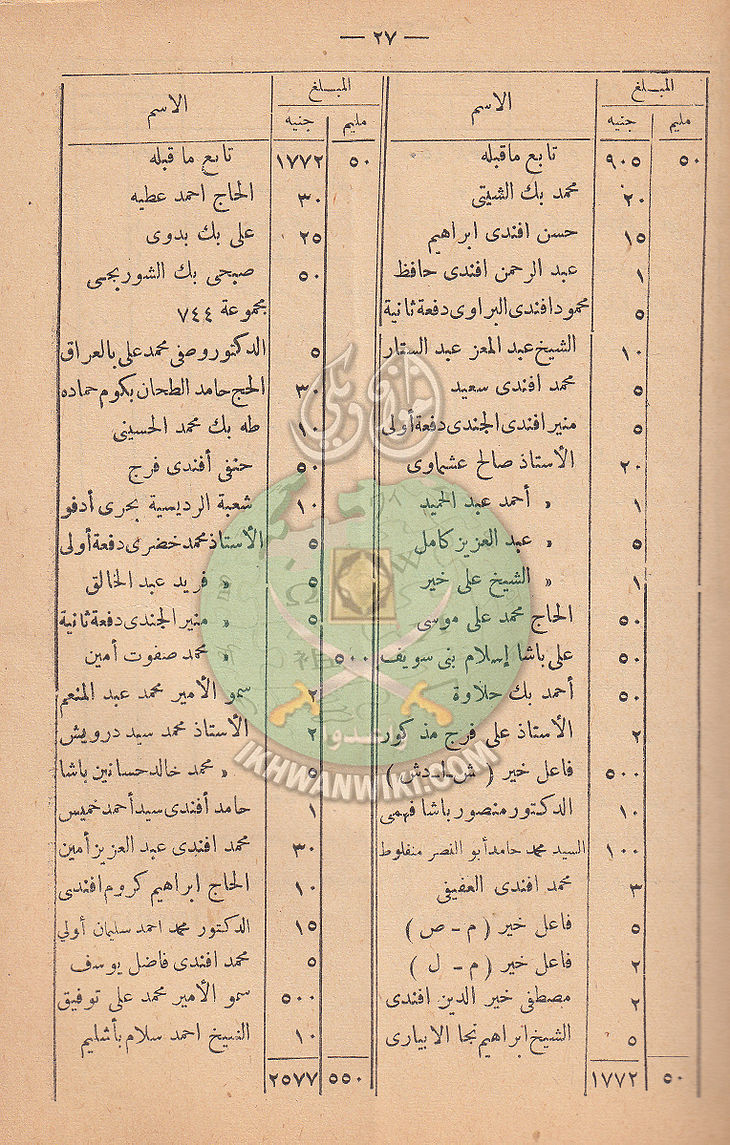 — ٢٧ —
المبلغ
مليم جنيه الاسم
٥٠ ٩٠٥ تابع ما قبله
٢٠ محمد بك الشيتى
١٥ حسن افندى ابراهيم
١ عبد الرحمن افندى حافظ
٥ محمود افندى البراوى دفعة ثانية
١٠ الشيخ عبد المعز عبد الستار
٥ محمد افندى سعيد
٥ منير افندى الجندى دفعة أولى
٢٠ الأستاذ صالح عشماوى
١ » أحمد عبد الحميد
٥ » عبد العزيز كامل
١ » الشيخ على خير
٥٠ الحاج محمد على موسى
٥٠ على باشا إسلام بنى سويف
٥٠ أحمد بك حلاوة
٢ الأستاذ على فرج مذكور
٥٠٠ فاعل خير ( ش.ا.دش )
١٠ الدكتور منصور باشا فهمى
١٠٠ السيد محمد حامد أبو النصر منفلوط
٣ محمد افندى العفيفى
٥ فاعل خير ( م - ص )
٢ فاعل خير ( م - ل )
٢ مصطفى خير الدين افندى
٥ الشيخ ابراهيم نجا الابيارى
٥٠ ١٧٧٢
المبلغ
مليم جنيه الاسم
٥٠ ١٧٧٢ تابع ما قبله
٣٠ الحاج احمد عطيه
٢٥ على بك بدوى
٥٠ صبحى بك الشوربجى
مجموعة ٧٤٤
٥ الدكتور وصفى محمد على بالعراق
٣٠ الحج حامد الطحان بكوم حماده
١٠ طه بك محمد الحسينى
٥٠ حنفى أفندى فرج
١٠ شعبة الرديسية بحرى أدفو
٥ الأستاذ محمد خضرى دفعة أولى
٥ » فريد عبد الخالق
٥ » منير الجندى دفعة ثانية
٥٠٠ » محمد صفوت أمين
٢ سمو الأمير محمد عبد المنعم
٢ الأستاذ محمد سيد درويش
٥ » محمد خالد حسانين باشا
١ حامد أفندى سيد أحمد خميس
٣٠ محمد افندى عبد العزيز أمين
١٠ الحاج ابراهيم كروم افندى
١٥ الدكتور محمد احمد سليمان أولي
٥ محمد افندى فاضل يوسف
٥٠٠ سمو الأمير محمد على توفيق
١٠ الشيخ احمد سلام بأشليم
٥٥٠ ٢٥٧٧
IKHWANWIKI.COM